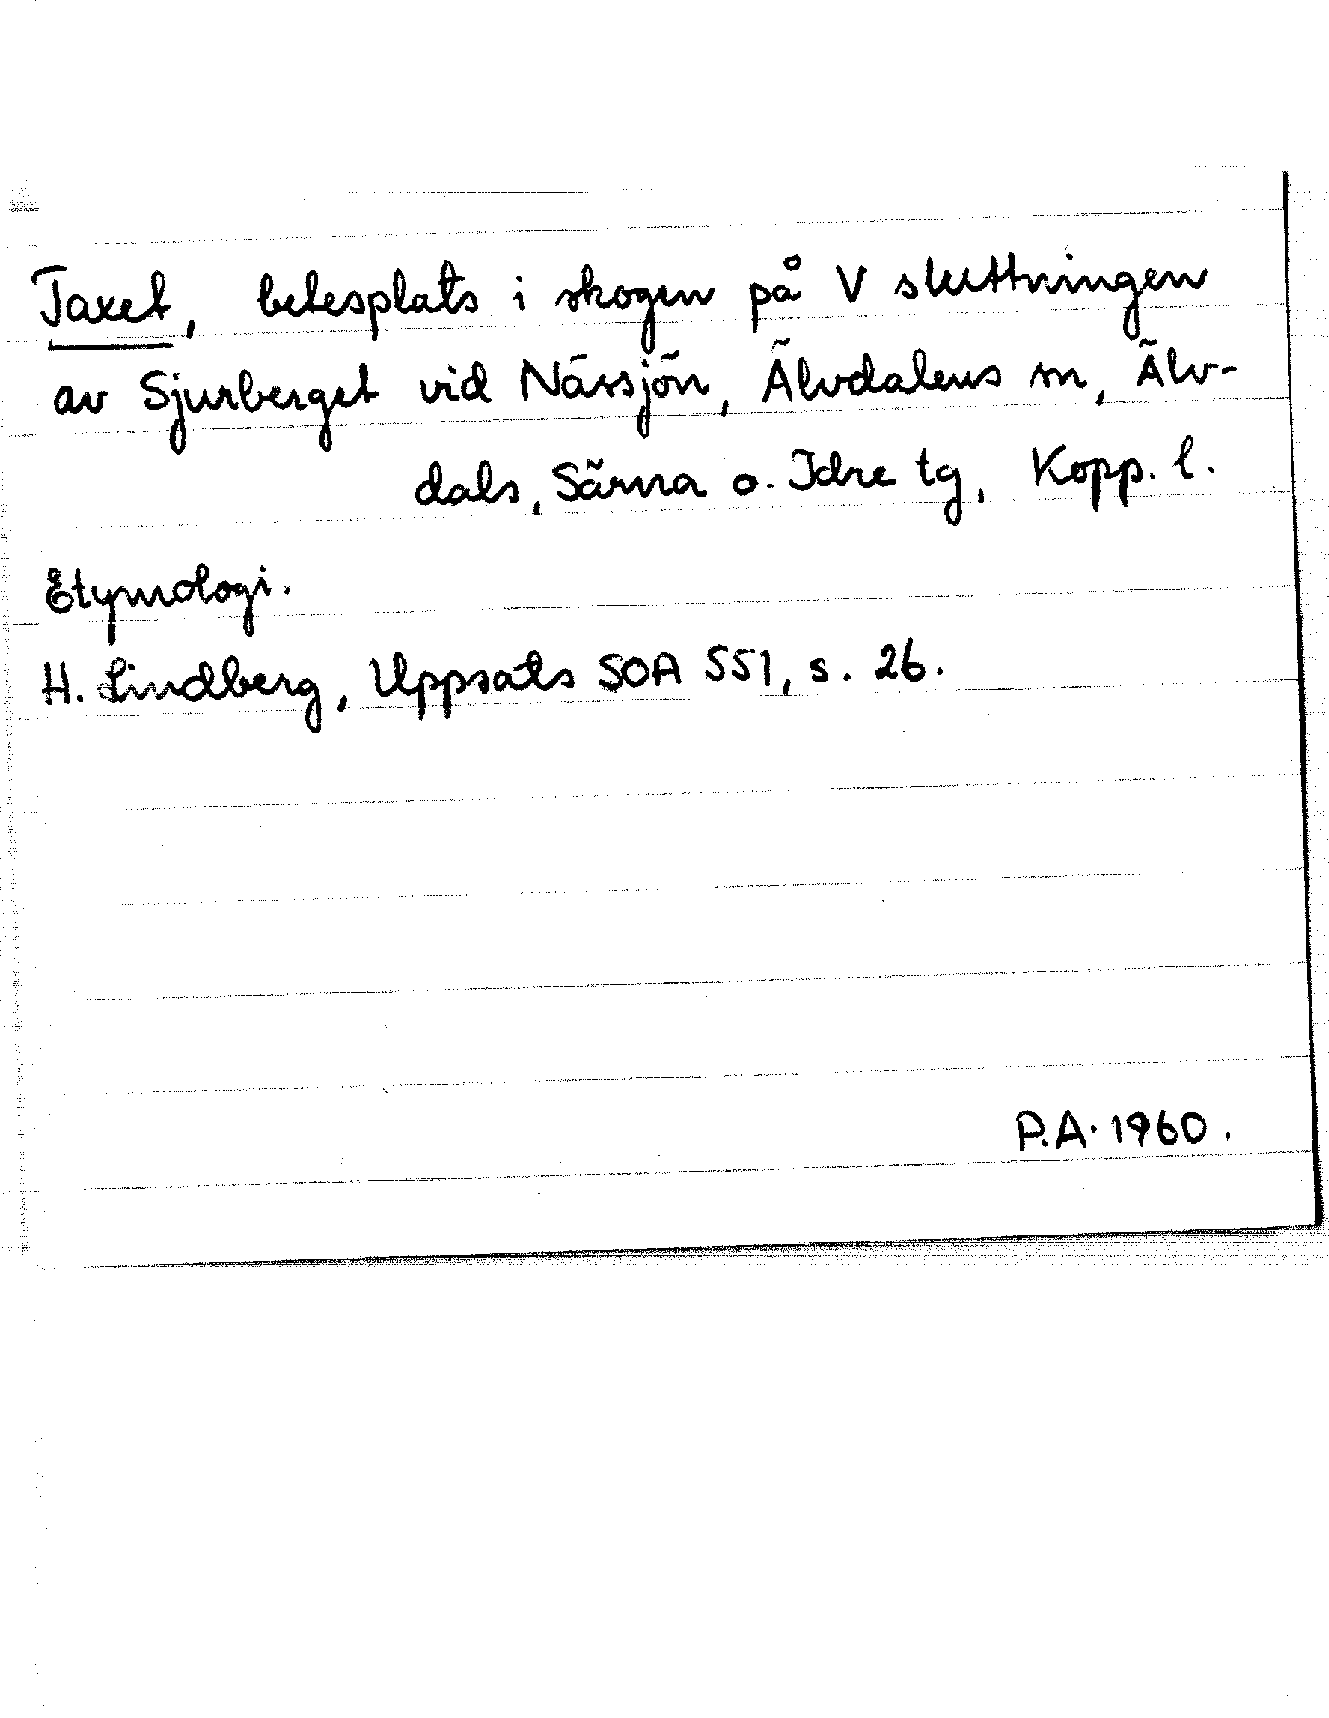 Taxet, betesplats i skogen på V sluttningen
av Sjurberget vid Nässjön, Älvdalens sn, Älv-
dals, Särna o. Idre tg, Kopp. l.
Etymologi.
H. Lindberg, Uppsats SOA 551, s. 26.
P.A. 1960.